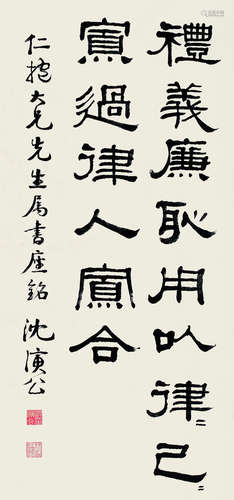 禮義廉恥用以律己〻
寡過律人寡合
仁搢大兄先生屬書座銘 沈演公